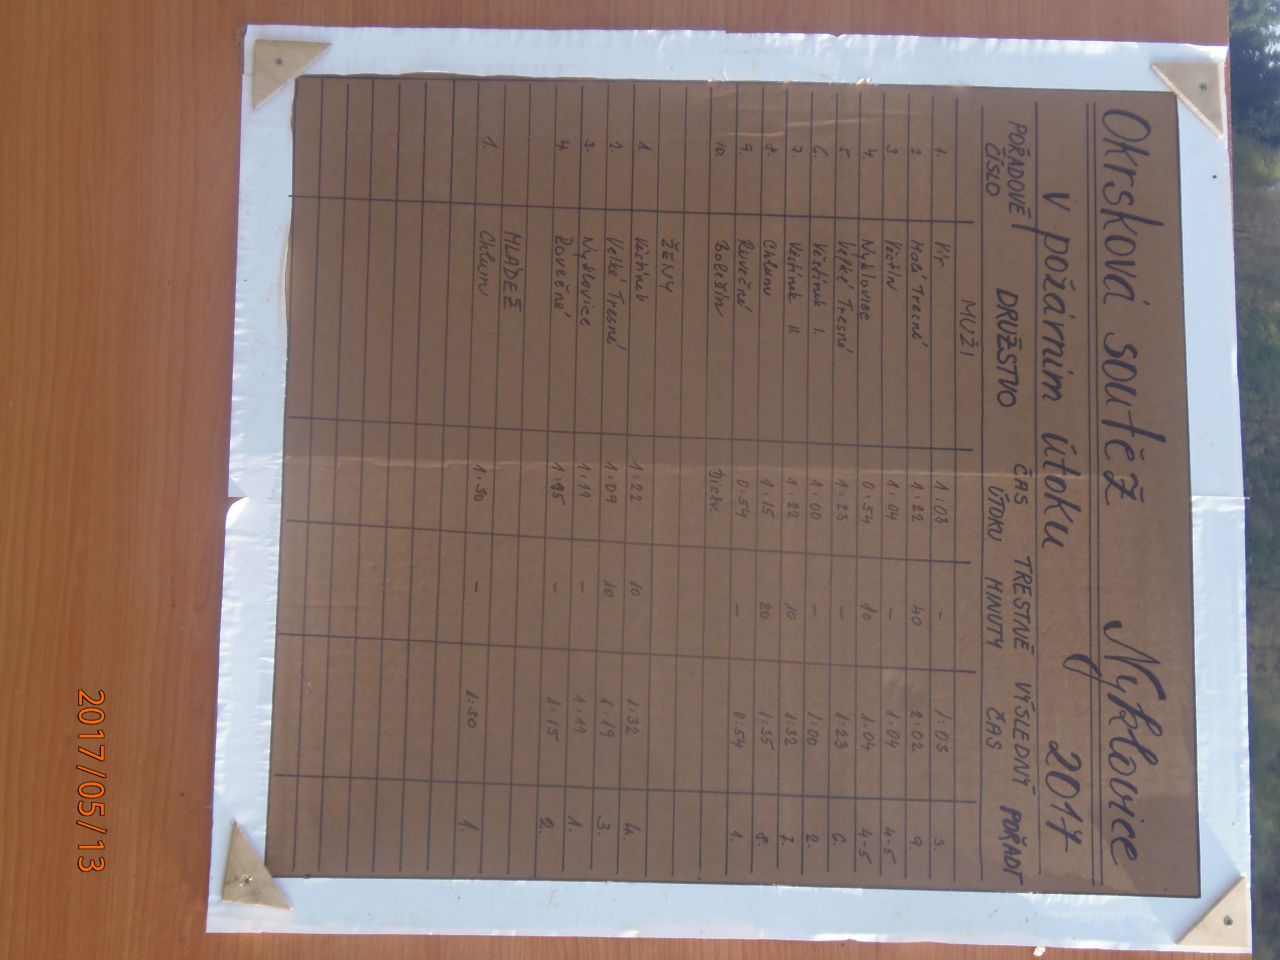 Okrsková soutěž Nyklovice
v požárním útoku 2017
POŘADOVÉ ČÍSLO DRUŽSTVO ČAS ÚTOKU TRESTNÉ MINUTY VÝSLEDNÝ ČAS POŘADÍ
MUŽI
1. Vír 1:03 - 1:03 3.
2. Malé Tresné 1:22 40 2:02 9.
3. Věstín 1:04 - 1:04 4-5
4. Nyklovice 0:54 10 1:04 4-5
5 Velké Tresné 1:23 - 1:23 6.
6. Věstínek I. 1:00 - 1:00 2.
7. Věstínek II. 1:22 10 1:32 7.
8. Chlum 1:15 20 1:35 8.
9. Rovečné 0:54 - 0:54 1.
10. Bolešín
ŽENY
1. Věstínek 1:22 10 1:32 4.
2. Velké Tresné 1:09 10 1:19 3.
3. Nyklovice 1:11 - 1:11 1.
4. Rovečné 1:15 - 1:15 2.
MLÁDEŽ
1. Chlum 1:30 - 1:30 1.
2017/05/13